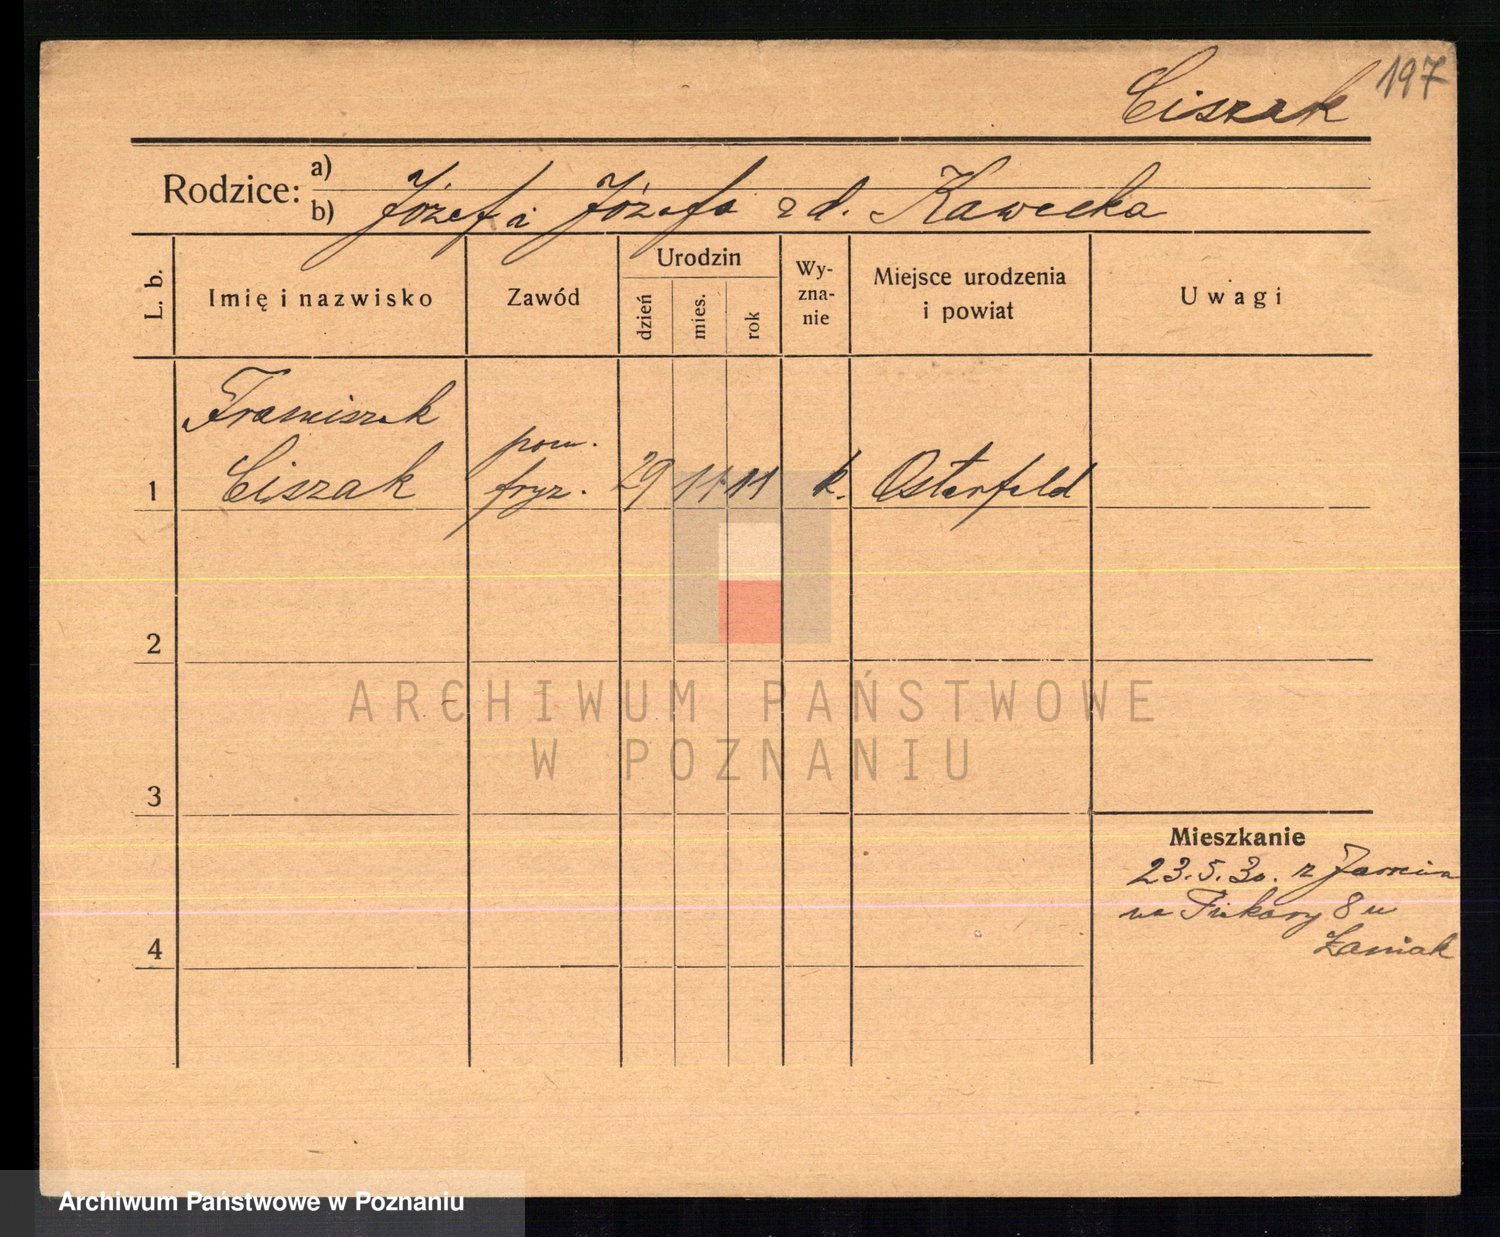 Ciszak 197
Rodzice: a)
b) Józef i Józefa z d. Kawecka
L. b.
Imię i nazwisko
Zawód
Urodzin
dzień
mies.
rok
Wy-
zna-
nie
Miejsce urodzenia
i powiat
Uwagi
Franciszek
Ciszak
pom.
fryz.
1
29 11 11 k. Osterfeld
2
ARCHIWUM PAŃSTWOWE
W POZNANIU
3
Mieszkanie
23.5.30. z
na 8 u
4
Archiwum Państwowe w Poznaniu